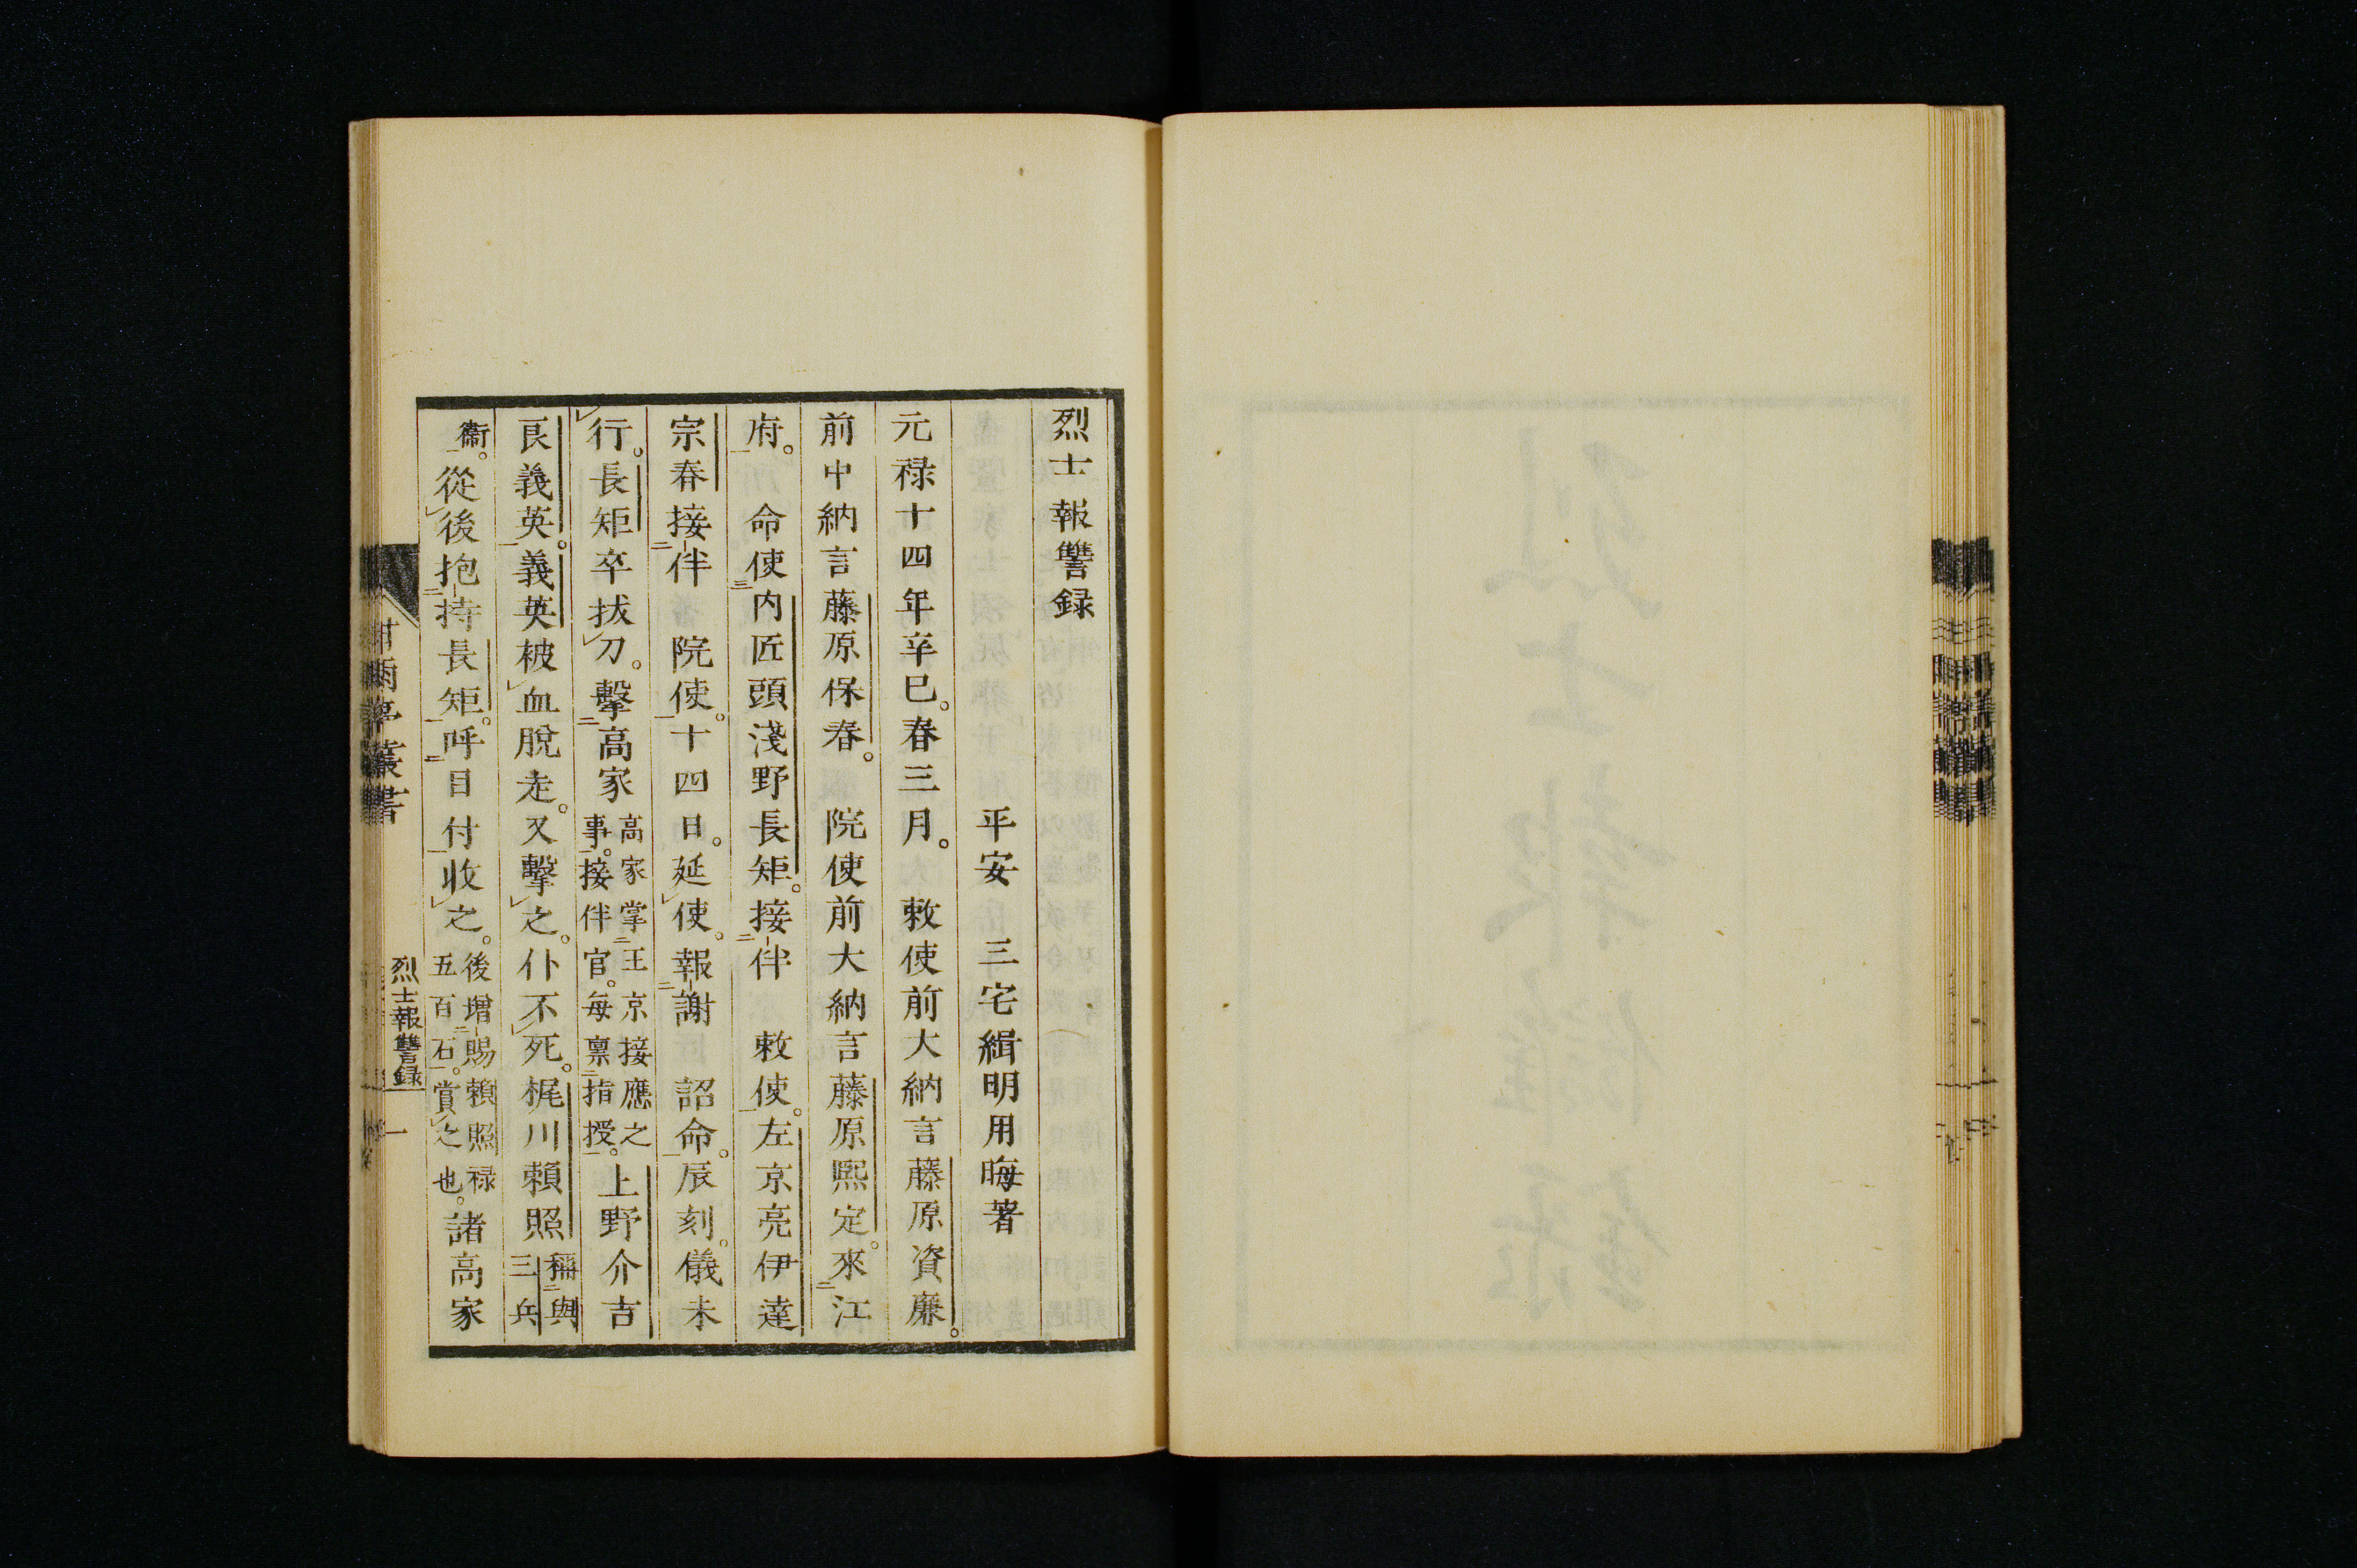 烈士報讐録
平安　三宅緝明用晦著
元禄十四年辛巳。春三月。　敕使前大納言藤原資廉。
前中納言藤原保春。　院使前大納言藤原熙定。來江
府。　命使内匠頭淺野長矩。接伴　敕使。左京亮伊達
宗春接伴　院使。十四日。延使。報謝　詔命。辰刻。儀未
行。長矩卒拔刀。擊高家高家掌王京接應之事。接伴官。每禀指授。上野介吉
良義英。義英被血脫走。又擊之。仆不死。梶川賴照稱與三兵
衞。從後抱持長矩。呼目付收之。後增賜賴照禄五百石。賞之也。諸高家
甘雨亭叢書
烈士報讐録
一